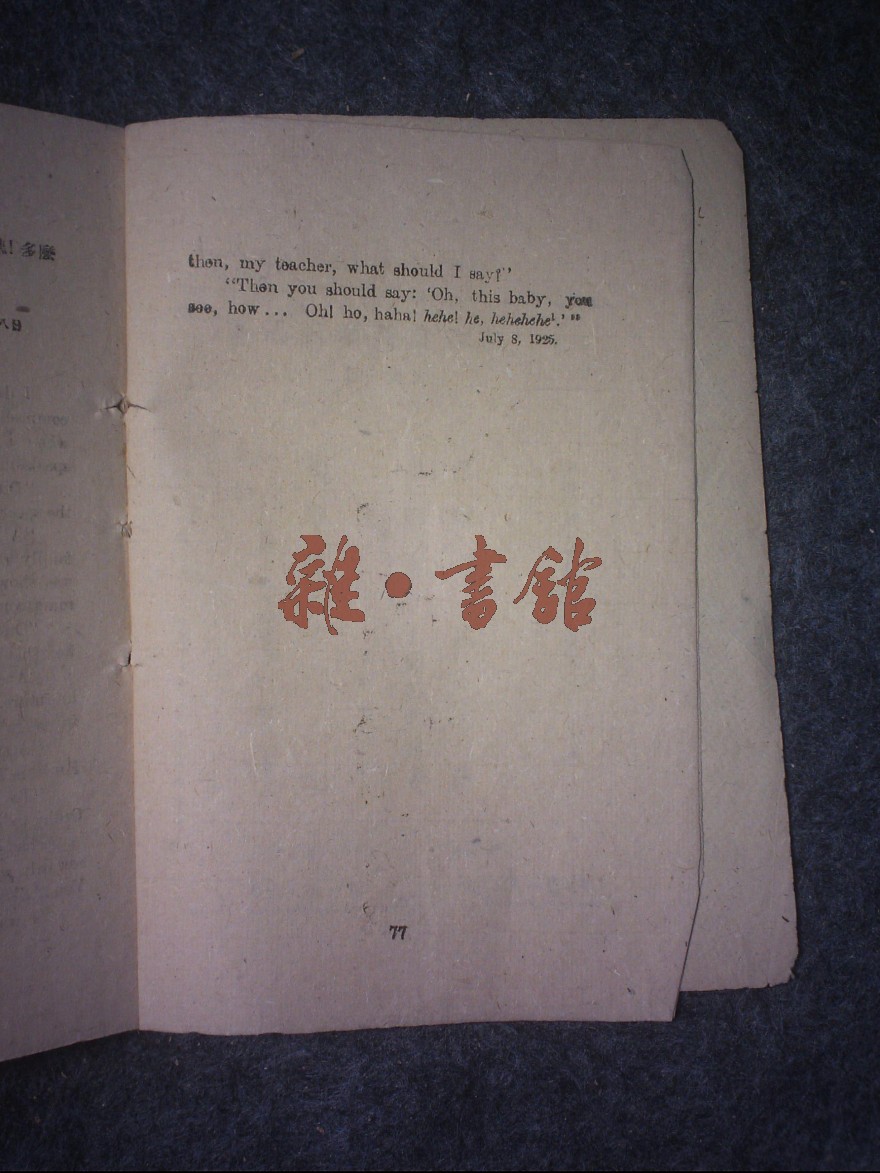 多麼
八日
then, my teacher, what should I say?"
"Then you should say: 'Oh, this baby, you
see, how... Oh! ho, haha! hehe! he, hehehehe!.'"
July 8, 1925.
雜•書館
77